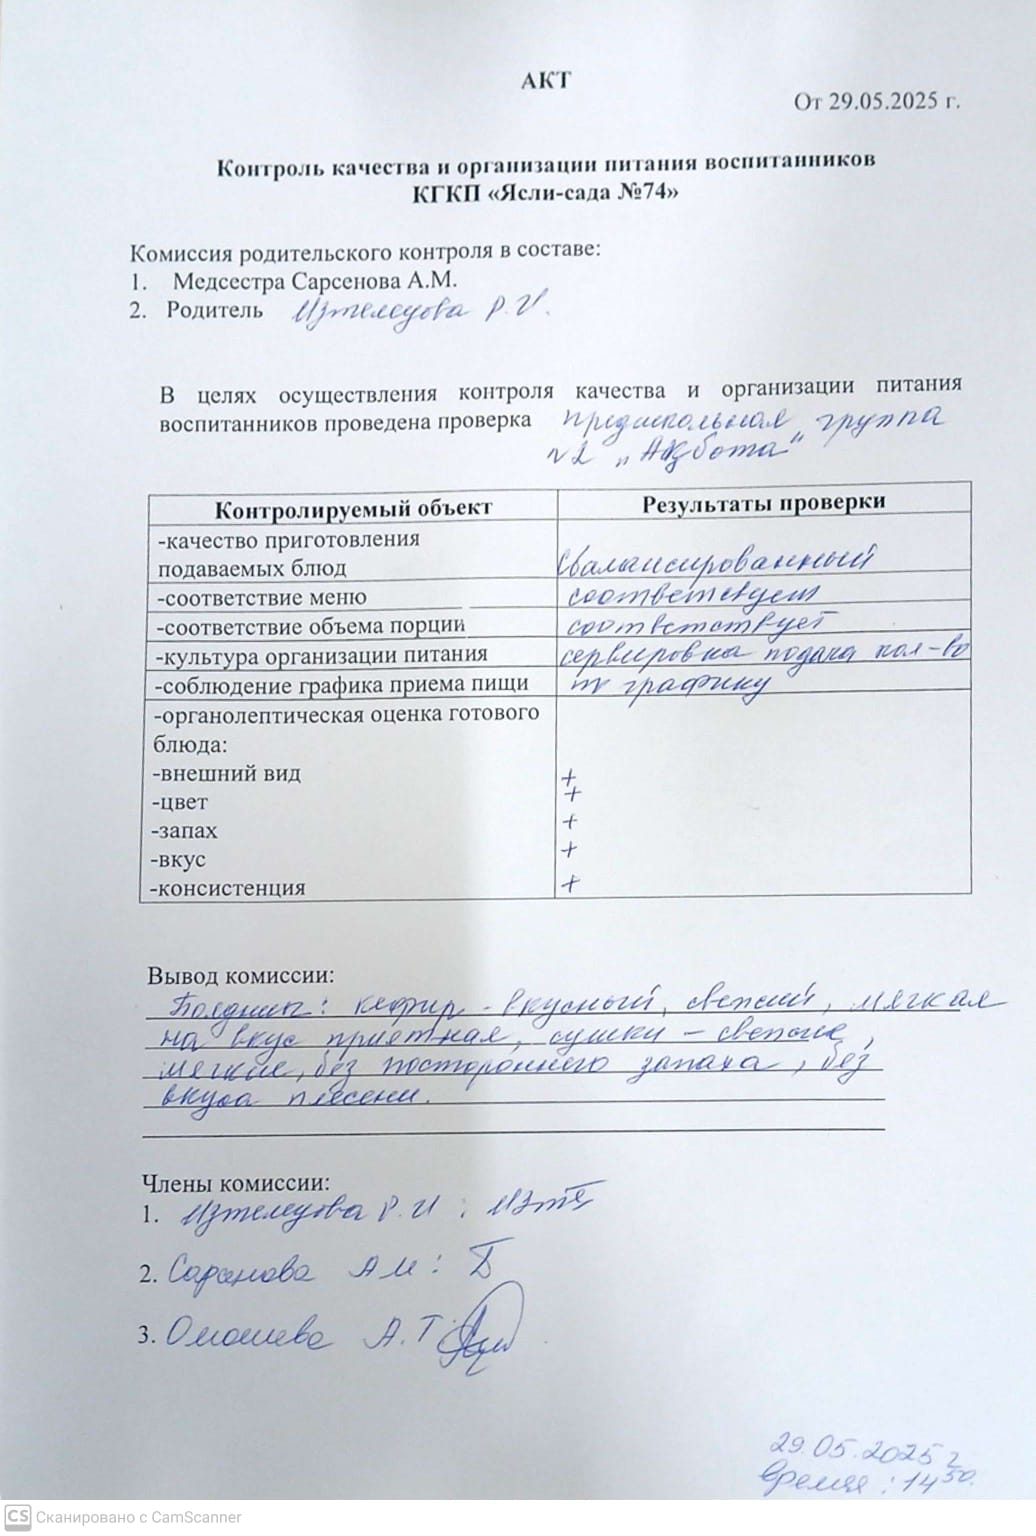 АКТ
От 29.05.2025 г.
Контроль качества и организации питания воспитанников
КГКП «Ясли-сада №74»
Комиссия родительского контроля в составе:
1. Медсестра Сарсенова А.М.
2. Родитель Изтелеуова Р.И.
В целях осуществления контроля качества и организации питания
воспитанников проведена проверка предшкольная группа
№2 „Ақбота“
Контролируемый объект Результаты проверки
-качество приготовления
подаваемых блюд сбалансированный
-соответствие меню соответствует
-соответствие объема порции соответствует
-культура организации питания сервировка подача кол-во
-соблюдение графика приема пищи по графику
-органолептическая оценка готового
блюда:
-внешний вид +
-цвет +
-запах +
-вкус +
-консистенция +
Вывод комиссии:
Полдник: кефир - вкусный, свежий, мягкая
на вкус приятная, сушки – свежие,
мягкие, без постороннего запаха, без
вкуса плесени.
Члены комиссии:
1. Изтелеуова Р.И :
2. Сарсенова А М :
3. Омашева А.Т.
29.05.2025 г
время : 14 50.
CS Сканировано с CamScanner